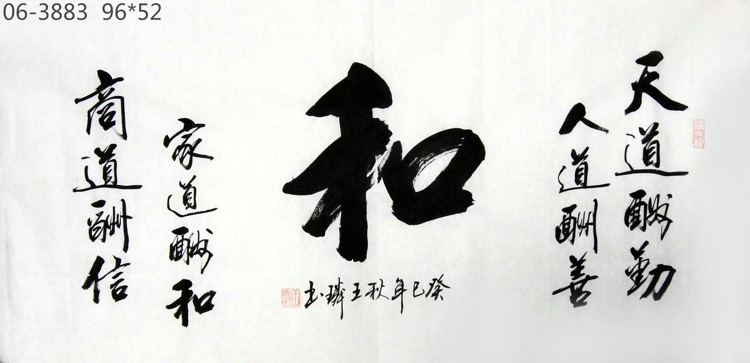 06-3883 96*52
天道酬勤
人道酬善
和
癸巳年秋王璘书
家道酬和
商道酬信